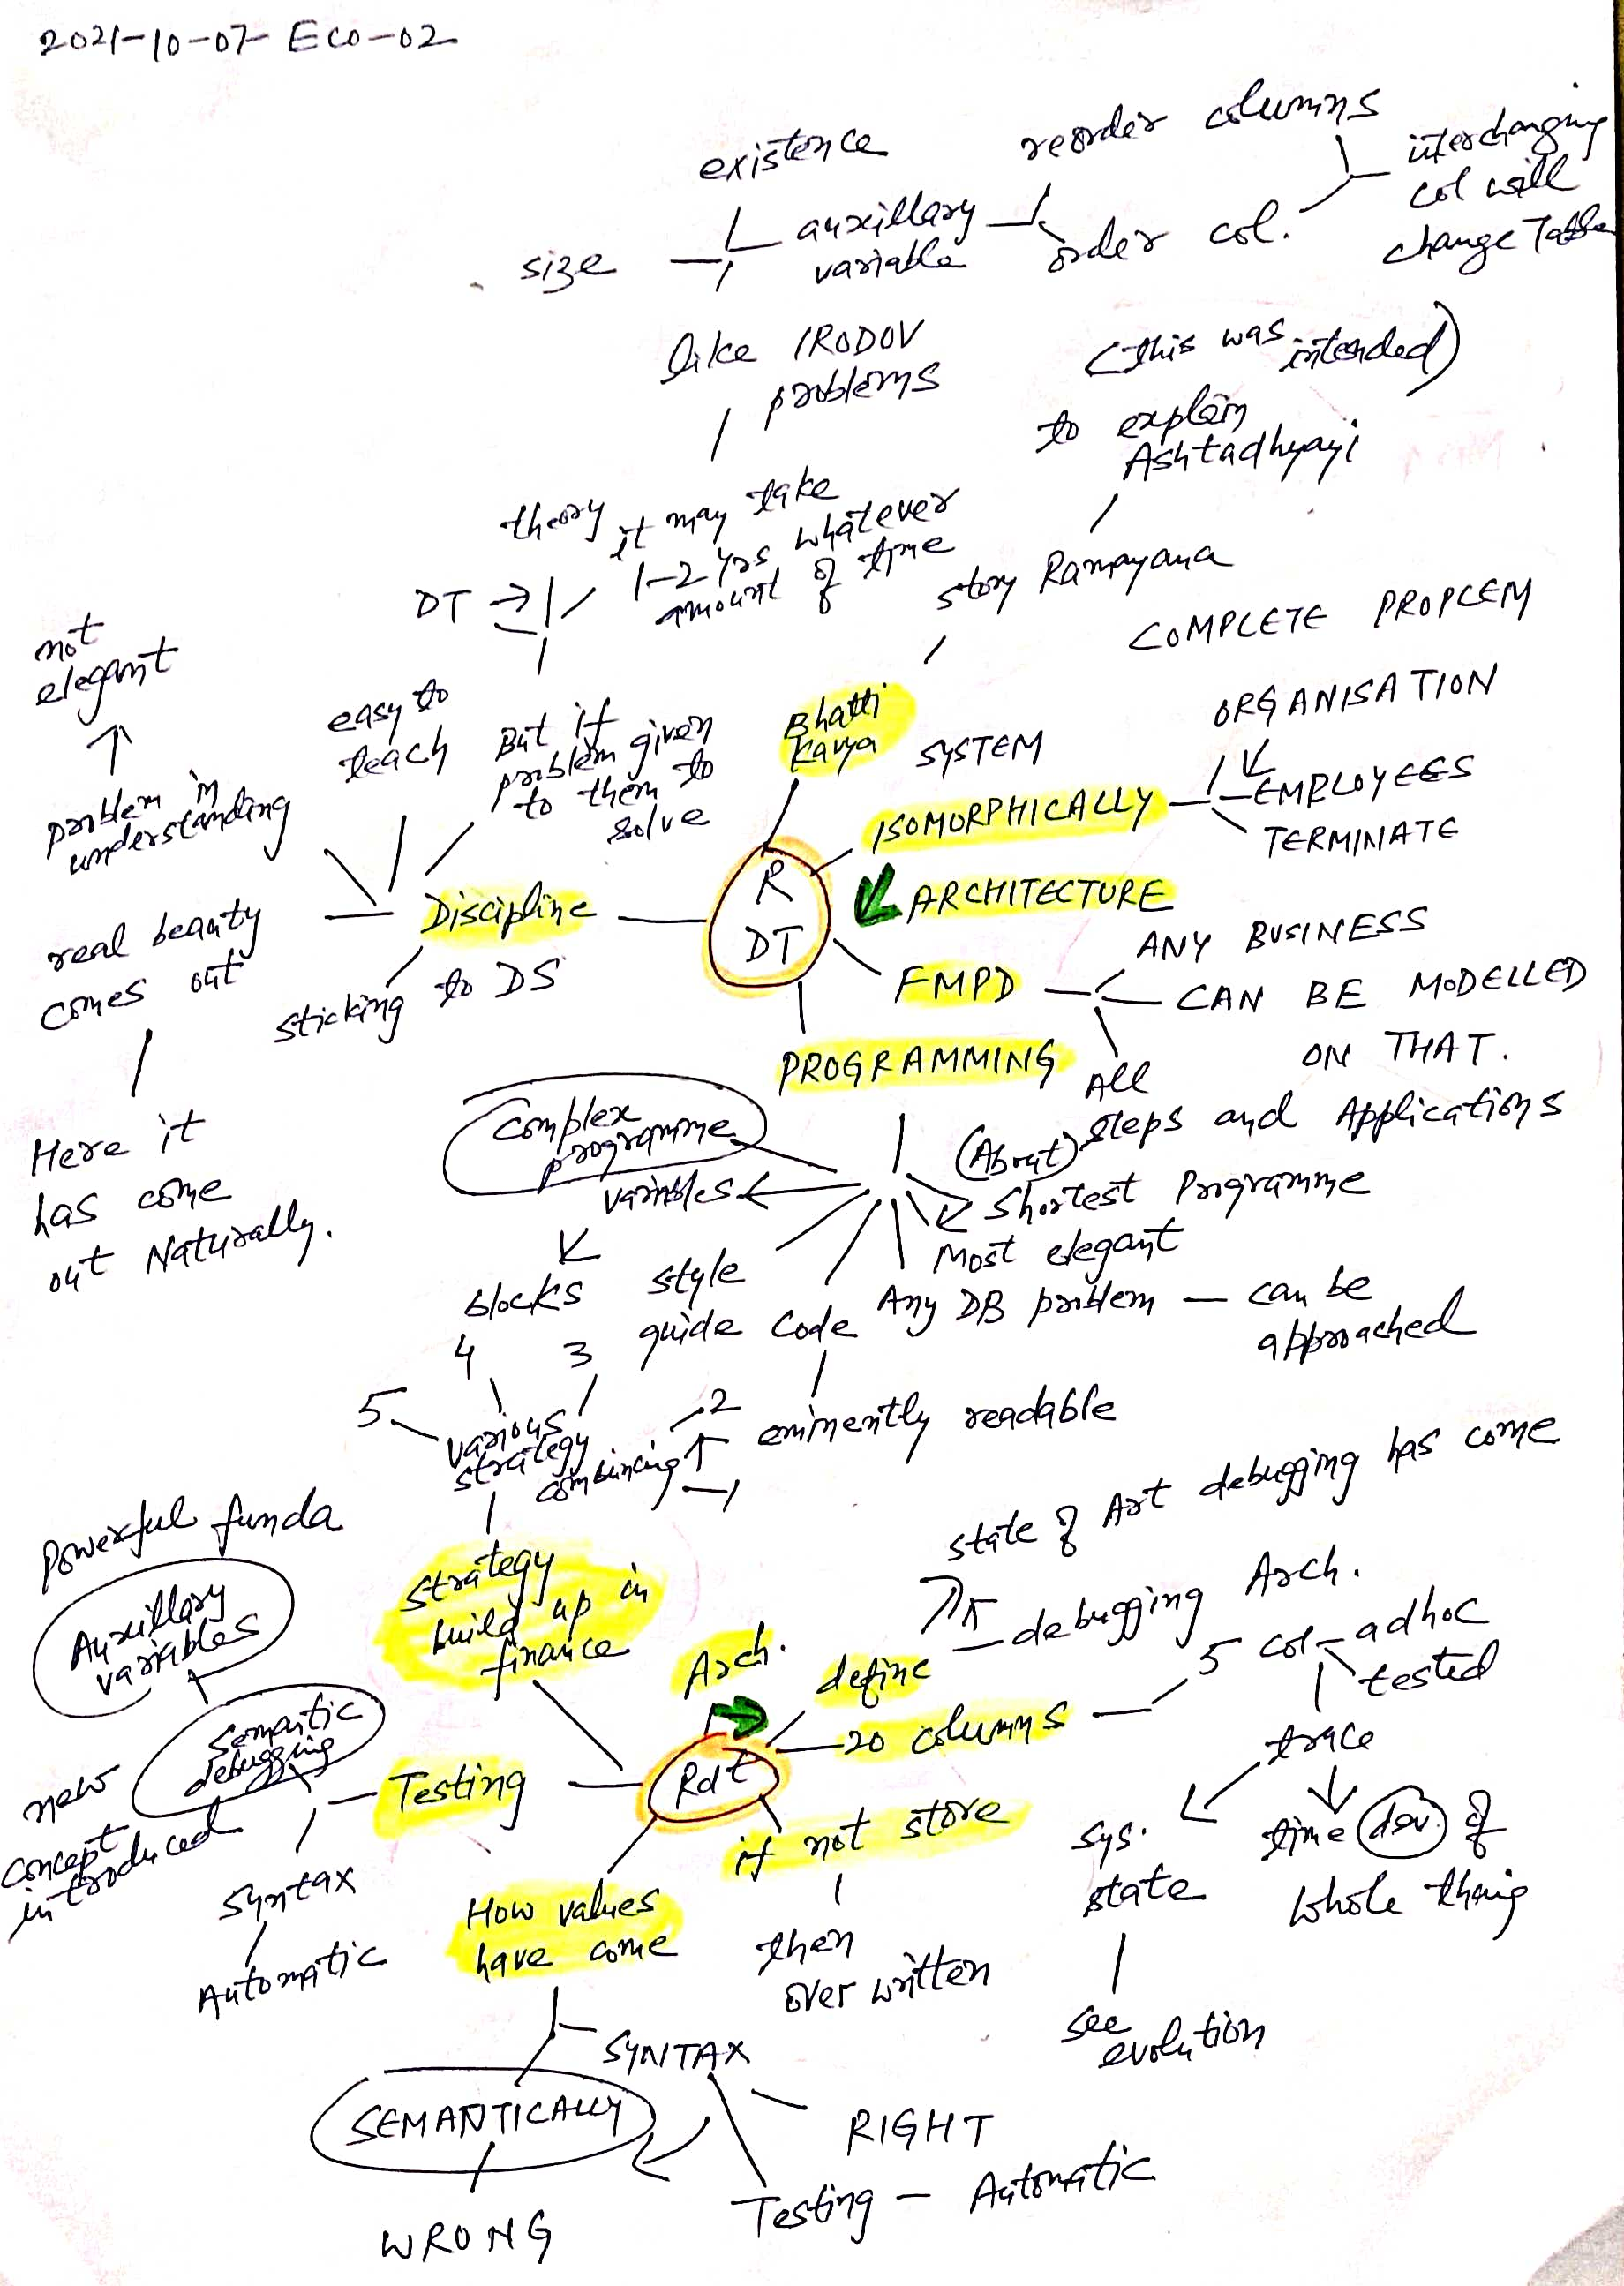 2021-10-07- ECO-02
existence
reorder columns
interchanging
col will
change Table
size
auxillary
variable
order col.
like IRODOV
problems
(this was intended)
to explain
Ashtadhyayi
theory
it may take
1-2 yrs whatever
amount of time
DT →
story Ramayana
COMPLETE PROPLEM
not
elegant
easy to
teach
But if
problem given
to them to
solve
Bhatti
Kavya
SYSTEM
ORGANISATION
EMPLOYEES
TERMINATE
problem in
understanding
ISOMORPHICALLY
R
DT
ARCHITECTURE
Discipline
real beauty
comes out
sticking to DS
FMPD
ANY BUSINESS
CAN BE MODELLED
ON THAT.
PROGRAMMING
Here it
has come
out Naturally.
Complex
programme
variables
All
(About) steps and Applications
Shortest Programme
Most elegant
blocks
style
guide
Code
Any DB problem — can be
approached
4
3
5
various
strategy
combining
2
1
eminently readable
Powerful funda
Auxillary
variables
strategy
build up in
finance
state of Art debugging has come
debugging Arch.
Arch.
define
20 columns
5 col
adhoc
tested
Semantic
debugging
new
concept
introduced
Testing
Rdt
if not store
trace
sys.
state
time dev. of
whole thing
syntax
Automatic
How values
have come
then
over written
see
evolution
SYNTAX
SEMANTICALLY
RIGHT
WRONG
Testing — Automatic